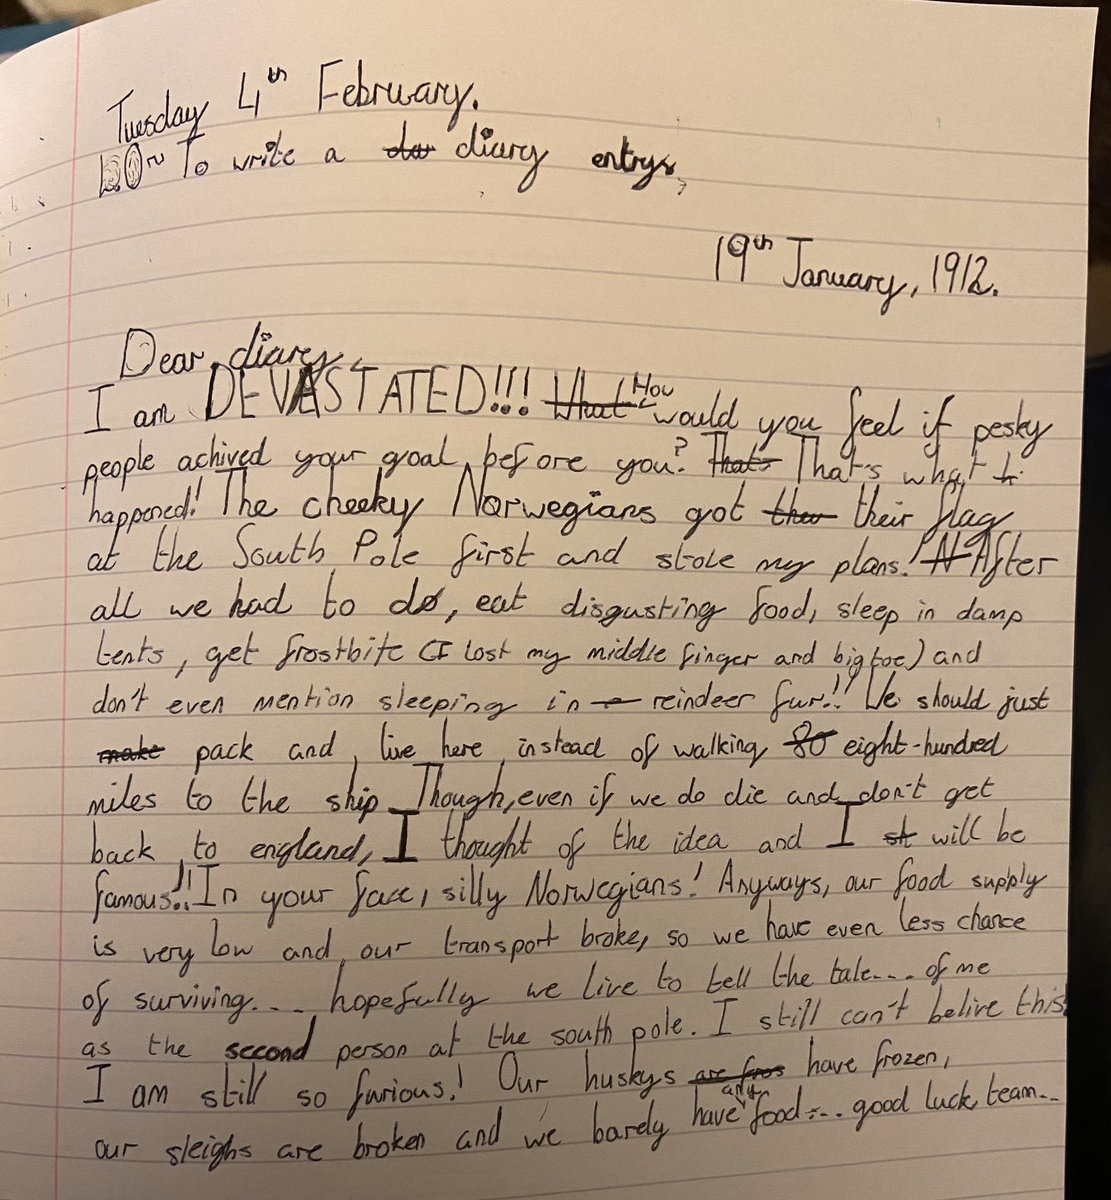 Tuesday 4th February.
L.O~ To write a diary entry,
19th January, 1912.
Dear diary,
I am DEVASTATED!!! How would you feel if pesky
people achived your goal before you? That's what
happened! The cheeky Norwegians got their flag
at the South Pole first and stole my plans! After
all we had to do, eat disgusting food, sleep in damp
tents, get frostbite (I lost my middle finger and big toe) and
don't even mention sleeping in reindeer fur!! We should just
pack and live here instead of walking eight-hundred
miles to the ship. Though, even if we do die and don't get
back to england, I thought of the idea and I will be
famous!! In your face, silly Norwegians! Anyways, our food supply
is very low and our transport broke, so we have even less chance
of surviving.... hopefully we live to tell the tale.... of me
as the second person at the south pole. I still can't belive this
I am still so furious! Our huskys have frozen,
our sleighs are broken and we barely have any food.... good luck team...